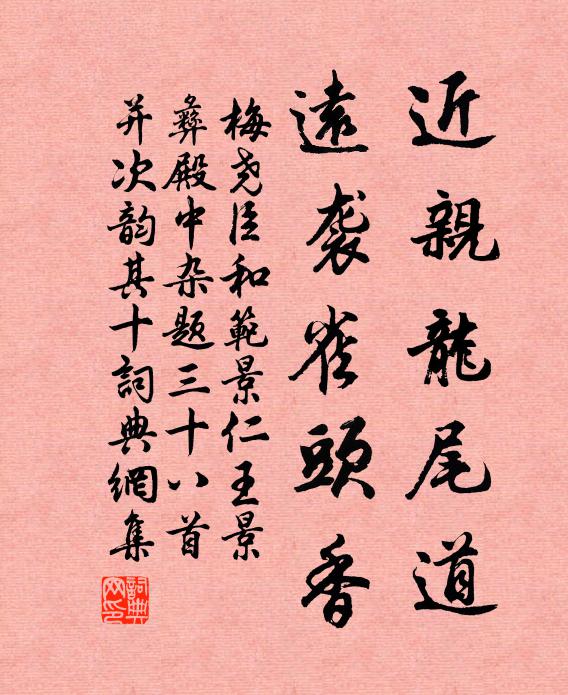 近親龍尾道
遠袭雀頭香
梅尧臣和範景仁王景
彝殿中杂题三十八首
并次韵其十詞典網集
詞典网印